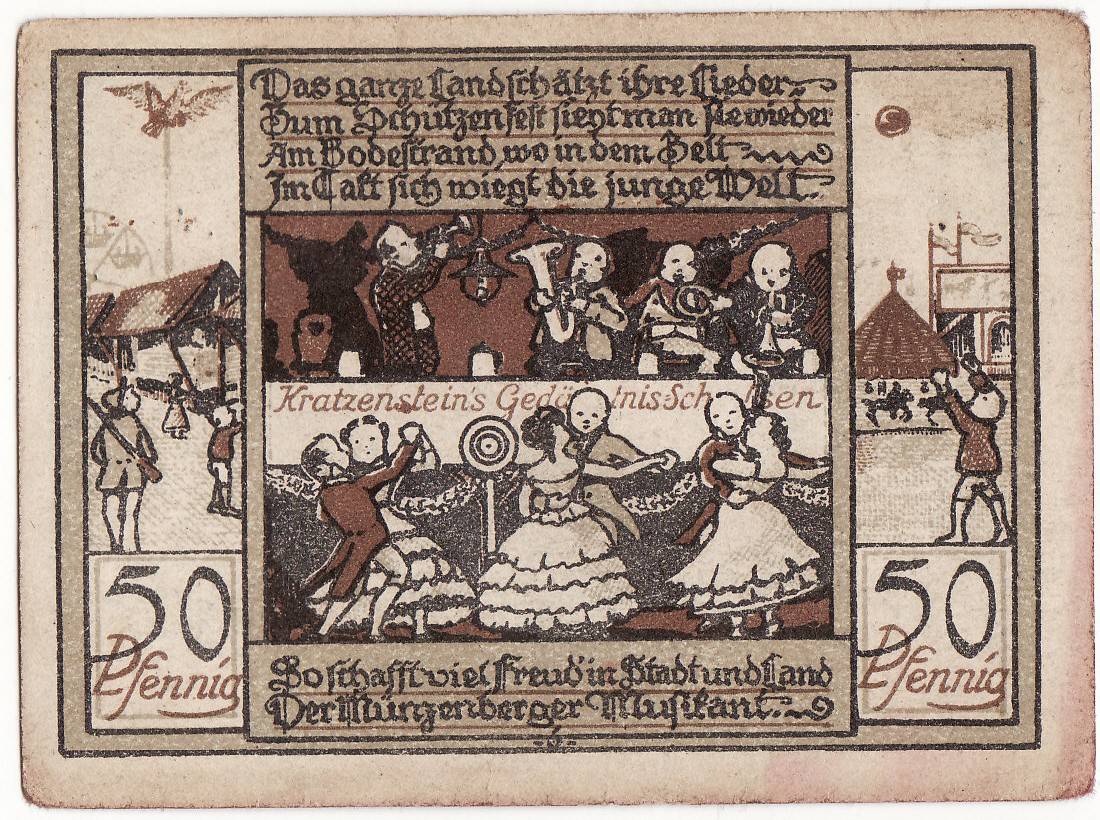 Das ganze Land schätzt ihre Lieder
Zum Schützenfest sieht man sie wieder
Am Bodestrand, wo in dem Zelt
Im Takt sich wiegt die junge Welt.
Kratzenstein's Gedächtnis-Sch sen
So schafft viel Freud' in Stadt und Land
Der Münzenberger Musikant.
50
Pfennig
50
Pfennig